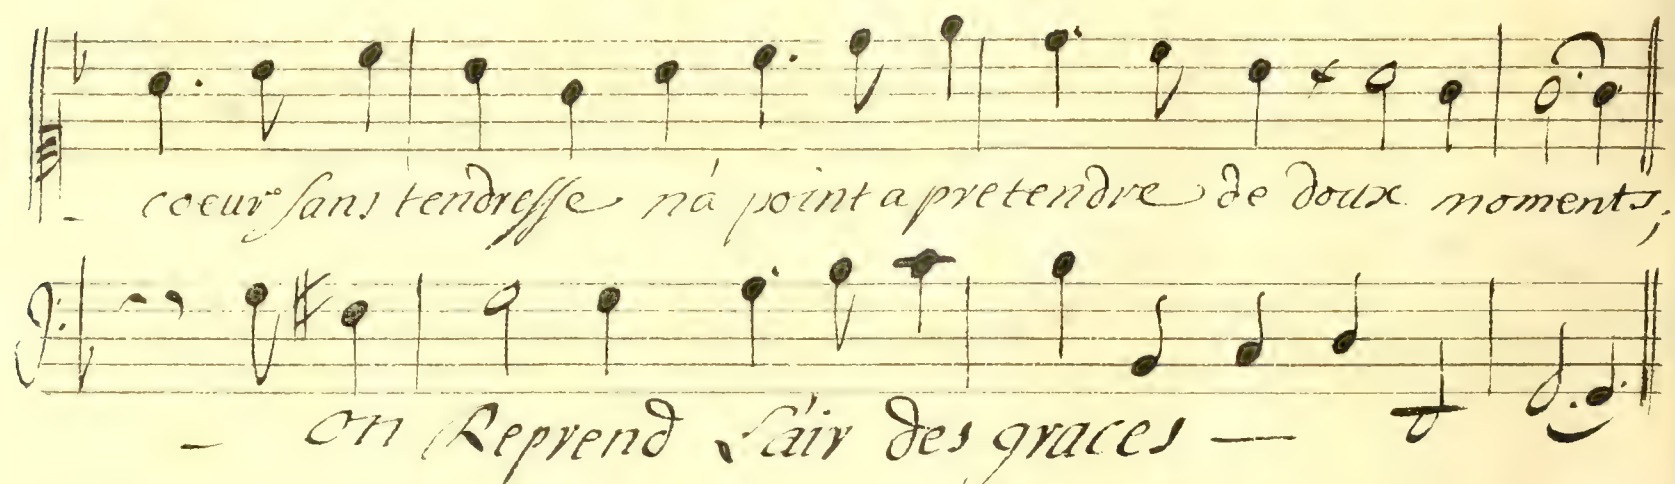 coeur sans tendresse n'a point a pretendre de doux moments;
on Reprend L'air des graces